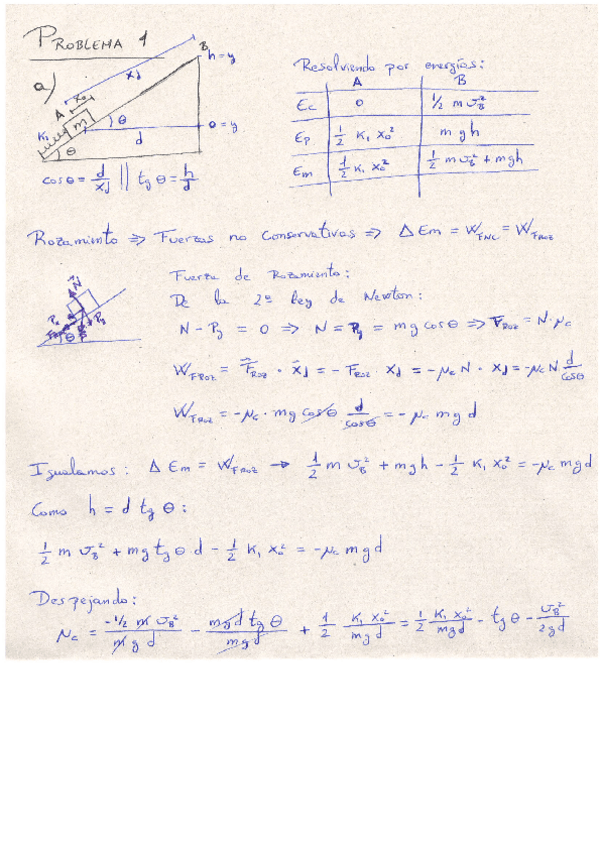 PROBLEMA 1
a)
B
h=y
xd
x₀
A
K₁
m
θ
0=y
d
θ
cosθ = d/xd || tg θ = h/d
Resolviendo por energías:
A B
Ec 0 1/2 m v_B²
Ep 1/2 K₁ x₀² m g h
Em 1/2 K₁ x₀² 1/2 m v_B² + mgh
Rozamiento ⇒ Fuerzas no Conservativas ⇒ ΔEm = W_FNC = W_FROZ
N
Px
Py
θ
Fuerza de Rozamiento:
De la 2ª ley de Newton:
N - Py = 0 ⇒ N = Py = mg cosθ ⇒ F_ROZ = N·μc
W_FROZ = F_ROZ · xd = - F_ROZ · xd = -μc N · xd = -μc N d/cosθ
W_FROZ = -μc · mg cosθ d/cosθ = - μc m g d
Igualamos: ΔEm = W_FROZ → 1/2 m v_B² + mgh - 1/2 K₁ x₀² = -μc mgd
Como h = d tg θ:
1/2 m v_B² + mg tg θ d - 1/2 K₁ x₀² = -μc mgd
Despejando:
μc = -1/2 m v_B² / m g d - mgd tg θ / mgd + 1/2 K₁ x₀² / mgd = 1/2 K₁ x₀² / mgd - tg θ - v_B² / 2gd